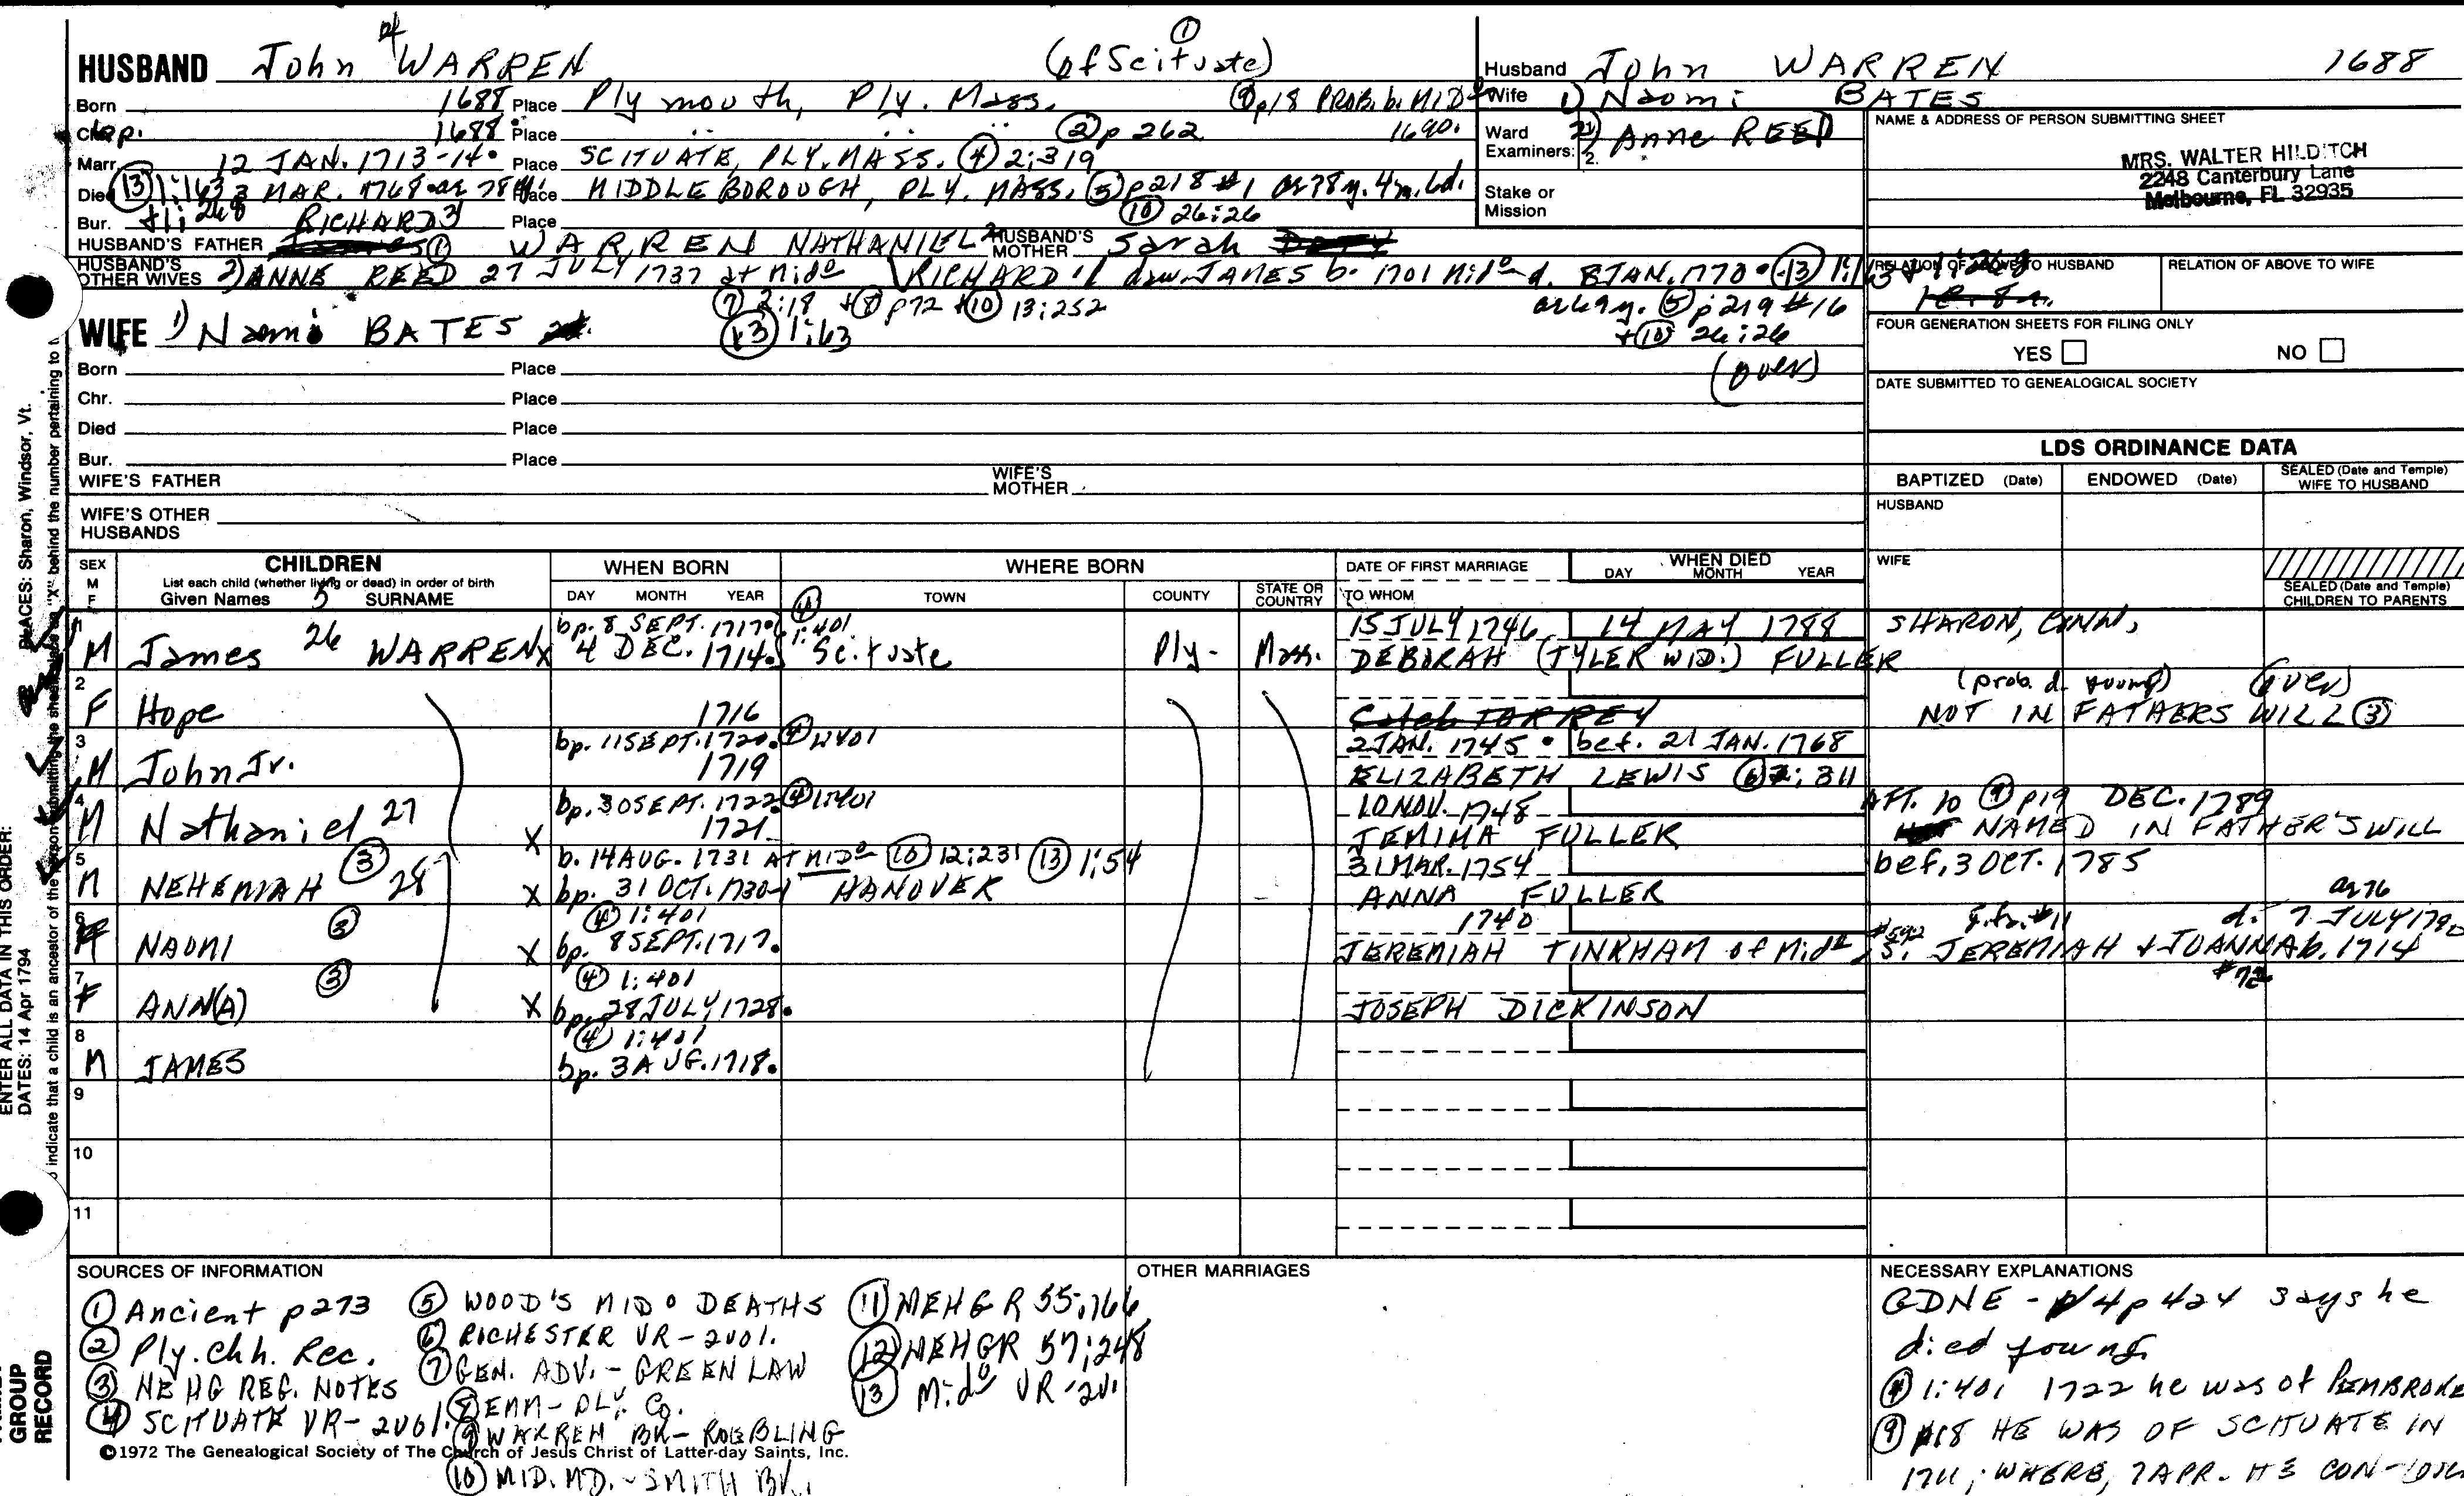 HUSBAND John 4 WARREN (of Scituate) ①
Born 1688 Place Plymouth, Ply. Mass. ⑨ p18 PROB. b. MIDº
Chr. bp. 1688 Place " " " ② p 262 1690.
Marr. 12 JAN. 1713-14 Place SCITUATE, PLY. MASS. ④ 2:319
Died ⑬ 1:163 3 MAR. 1768 ae 78 Place MIDDLEBOROUGH, PLY. MASS. ⑤ p218 #1 ae 78y. 4m. 6d.
Bur. +1:268 Place ⑩ 26:26
HUSBAND'S FATHER RICHARD 3 ① WARREN NATHANIEL 2 HUSBAND'S MOTHER Sarah Doty
RICHARD 1
HUSBAND'S OTHER WIVES 2) ANNE REED 27 JULY 1737 at Midº dau. JAMES b. 1701 Midº d. 8 JAN. 1770 ⑬ 1:163 + 1:268
⑦ 2:18 + ⑧ p72 + ⑩ 13:252 ae 69y. ⑤ p219 #16
⑬ 1:63 + ⑩ 26:26
WIFE 1) Naomi BATES
(over)
Born Place
Chr. Place
Died Place
Bur. Place
WIFE'S FATHER WIFE'S MOTHER
WIFE'S OTHER HUSBANDS
Husband John WARREN 1688
Wife 1) Naomi BATES
Ward Examiners: 1. 2) Anne REED
2.
Stake or Mission
NAME & ADDRESS OF PERSON SUBMITTING SHEET
MRS. WALTER HILDITCH
2248 Canterbury Lane
Melbourne, FL 32935
RELATION OF ABOVE TO HUSBAND RELATION OF ABOVE TO WIFE
FOUR GENERATION SHEETS FOR FILING ONLY
YES NO
DATE SUBMITTED TO GENEALOGICAL SOCIETY
LDS ORDINANCE DATA
BAPTIZED (Date) ENDOWED (Date) SEALED (Date and Temple) WIFE TO HUSBAND
HUSBAND
WIFE
SEALED (Date and Temple) CHILDREN TO PARENTS
SEX M F
CHILDREN
List each child (whether living or dead) in order of birth
Given Names 5 SURNAME
WHEN BORN
DAY MONTH YEAR
WHERE BORN
TOWN COUNTY STATE OR COUNTRY
DATE OF FIRST MARRIAGE
TO WHOM
WHEN DIED
DAY MONTH YEAR
1 bp. 8 SEPT. 1717 ④ 1:401 15 JULY 1746 14 MAY 1788 SHARON, CONN.
M James 26 WARREN X 4 DEC. 1714 Scituate Ply. Mass. DEBORAH (TYLER WID.) FULLER
2 (prob. d. young) (over)
F Hope 1716 Caleb TORREY NOT IN FATHERS WILL ③
3 bp. 11 SEPT. 1720 ④ 1:401 2 JAN. 1745 bef. 21 JAN. 1768
M John Jr. 1719 ELIZABETH LEWIS ⑥ 2:311
4 bp. 30 SEPT. 1722 ④ 1:401 10 NOV. 1748 AFT. 10 ⑨ p19 DEC. 1789
M Nathaniel 27 X 1721 JEMIMA FULLER NAMED IN FATHER'S WILL
5 b. 14 AUG. 1731 AT MIDº ⑩ 12:231 ⑬ 1:54 31 MAR. 1754 bef. 3 OCT. 1785
M NEHEMIAH ③ 28 X bp. 31 OCT. 1730-1 HANOVER ANNA FULLER
6 ④ 1:401 1740 g.fr. #11 d. 7 JULY 1790 ae 76
F NAOMI ③ X bp. 8 SEPT. 1717. JEREMIAH TINKHAM of Midº #592 s. JEREMIAH + JOANNA b. 1714
7 ④ 1:401 #72
F ANN(A) ③ X bp. 28 JULY 1728. JOSEPH DICKINSON
8 ④ 1:401
M JAMES bp. 3 AUG. 1718.
9
10
11
SOURCES OF INFORMATION
① Ancient p273
② Ply. Chh. Rec.
③ NE HG REG. NOTES
④ SCITUATE VR - 2vol.
⑤ WOOD'S MIDº DEATHS
⑥ ROCHESTER VR - 2vol.
⑦ GEN. ADV. - GREENLAW
⑧ EMM - PLY. Co.
⑨ WARREN BK - ROEBLING
⑩ MID. MD. - SMITH Bk.
⑪ NEHGR 55:166
⑫ NEHGR 57:248
⑬ Midº VR - 2v.
OTHER MARRIAGES
NECESSARY EXPLANATIONS
GDNE - 4 p 424 says he
died young.
④ 1:401 1722 he was of PEMBROKE
⑨ p18 HE WAS OF SCITUATE IN
1711; WHERE, 7 APR. HE
©1972 The Genealogical Society of The Church of Jesus Christ of Latter-day Saints, Inc.
ENTER ALL DATA IN THIS ORDER:
DATES: 14 Apr 1794 PLACES: Sharon, Windsor, Vt.
indicate that a child is an ancestor of the person submitting the sheet, "X" behind the number pertaining to
GROUP
RECORD